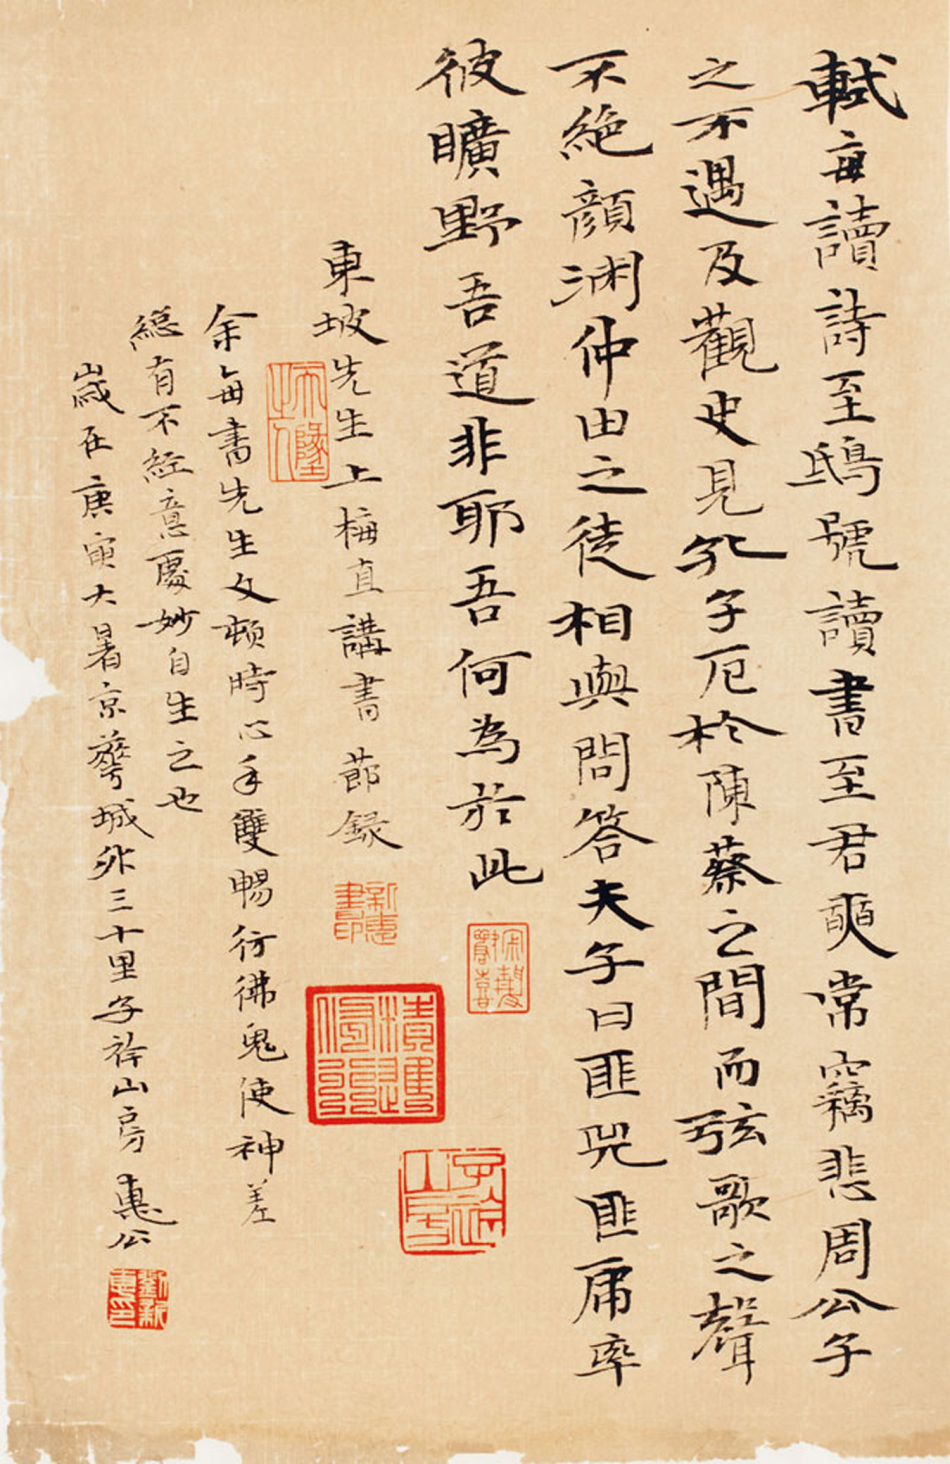 軾每讀詩至鴟號讀書至君奭常竊悲周公子
之不遇及觀史見孔子厄於陳蔡之間而弦歌之聲
不絕顏渊仲由之徒相與問答夫子曰匪兕匪虎率
彼曠野吾道非耶吾何為於此
東坡先生上梅直講書節録
余每書先生文頓時心手雙暢彷彿鬼使神差
縂有不經意處妙自生之也
歲在庚寅大暑京華城外三十里子祚山房惠公
新惠書印
劉新惠印